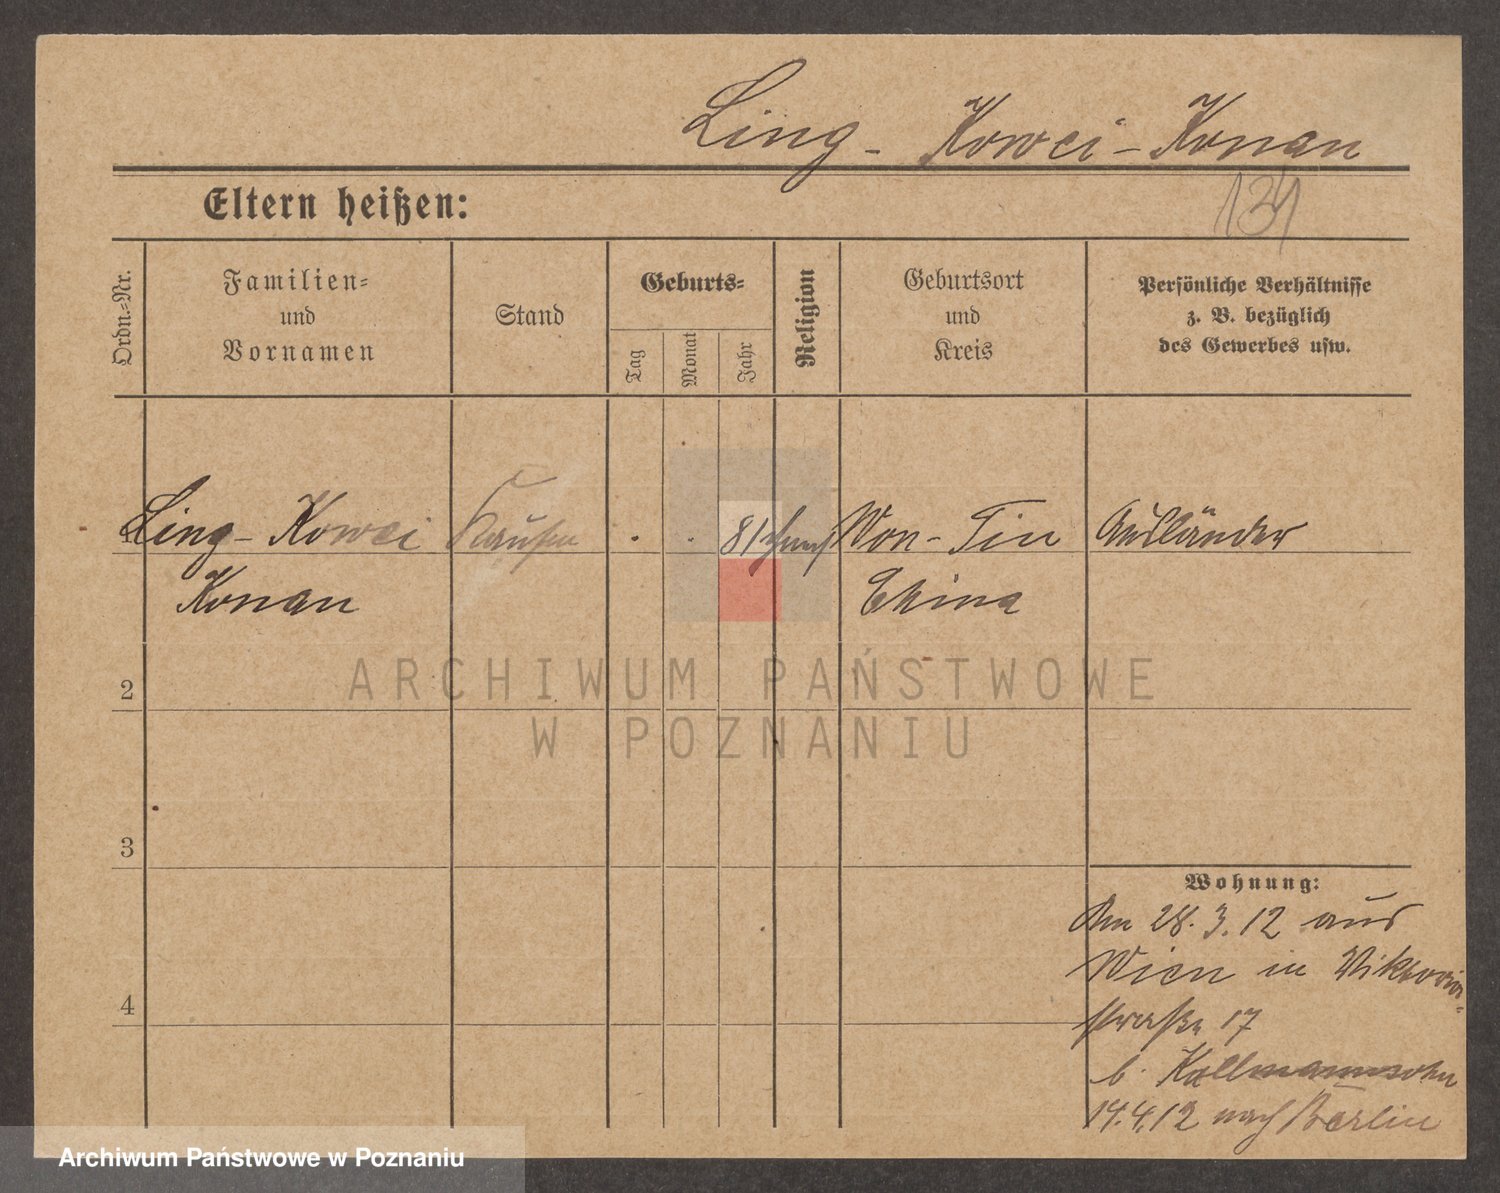 Ling - Kowei - Konan
134
Eltern heißen:
Ordn.-Nr.
Familien-
und
Vornamen
Stand
Geburts-
Tag
Monat
Jahr
Religion
Geburtsort
und
Kreis
Persönliche Verhältnisse
z. B. bezüglich
des Gewerbes usw.
Ling - Kowei
Konan
81
Won - Tin
China
Ausländer
ARCHIWUM PAŃSTWOWE
W POZNANIU
2
3
4
Wohnung:
Am 28. 3. 12 aus
Wien in Viktoria-
straße 17
b. Kallmannsohn
14.4.12 nach Berlin
Archiwum Państwowe w Poznaniu